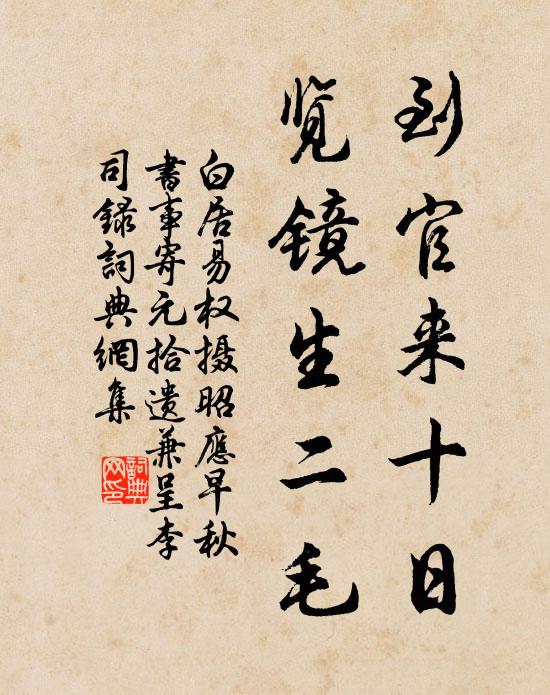 到官来十日
览镜生二毛
白居易权摄昭應早秋
書事寄元拾遗兼呈李
司録詞典網集
詞典
网印